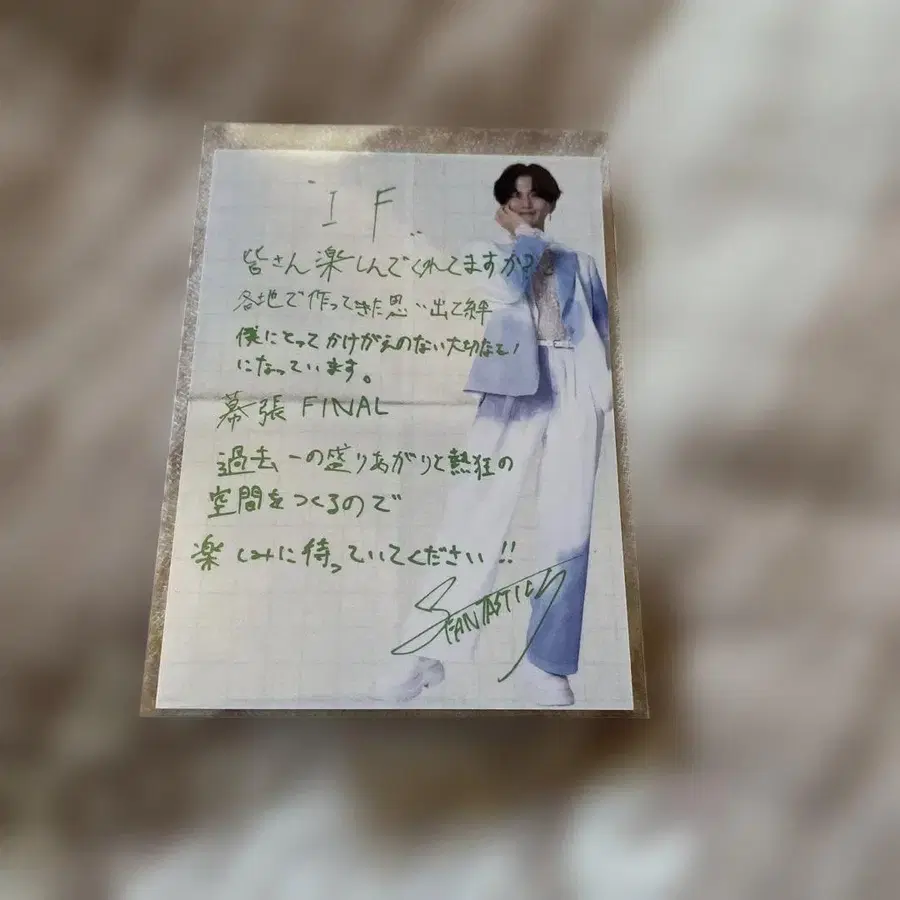 "IF"
皆さん楽しんでくれてますか？
各地で作ってきた思い出と絆
僕にとってかけがえのない大切なモノ
になっています。
幕張 FINAL
過去一の盛りあがりと熱狂の
空間をつくるので
楽しみに待っていてください!!
FANTASTICS